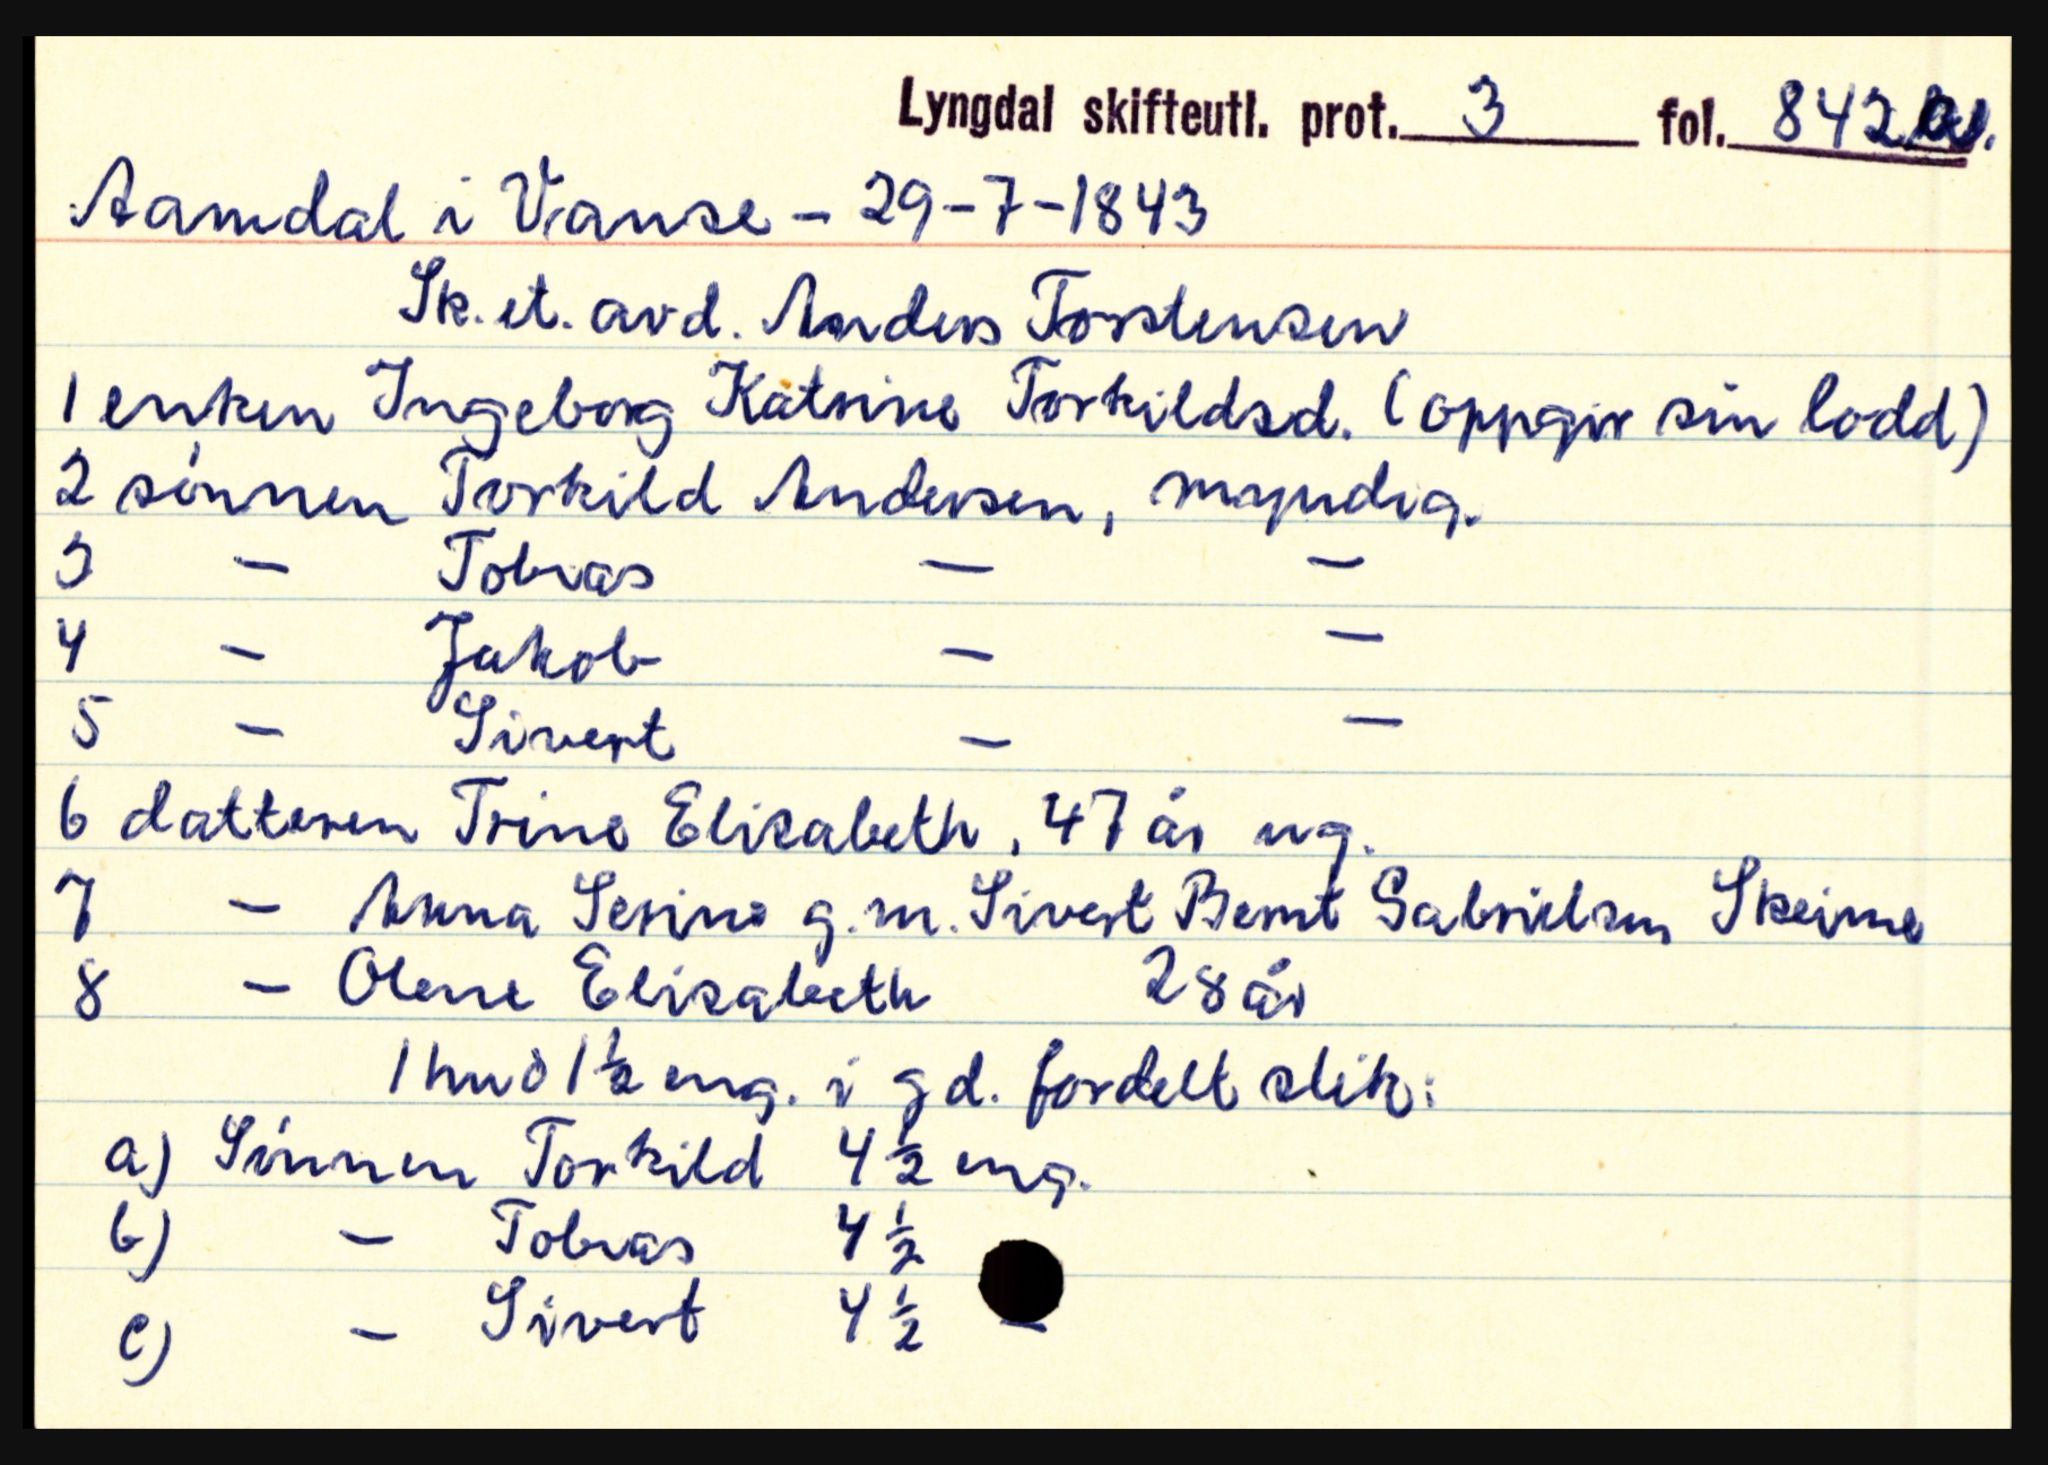 Lyngdal skifteutl. prot. 3 fol. 842
Aamdal i Vanse - 29-7-1843
Sk. et. avd. Anders Torstensen
1 enken Ingeborg Katrine Torkildsd. (oppgir sin lodd)
2 sønnen Torkild Andersen, myndig.
3 - Tobias - -
4 - Jakob - -
5 - Sivert - -
6 datteren Trine Elisabeth, 47 år ug.
7 - Anna Serine g.m. Sivert Bernt Gabrielsen Skeime
8 - Olene Elisabeth 28 år
1 hud 1 1/2 eng. i gd. fordelt slik:
a) Sønnen Torkild 4 1/2 eng.
b) - Tobias 4 1/2
c) - Sivert 4 1/2 -